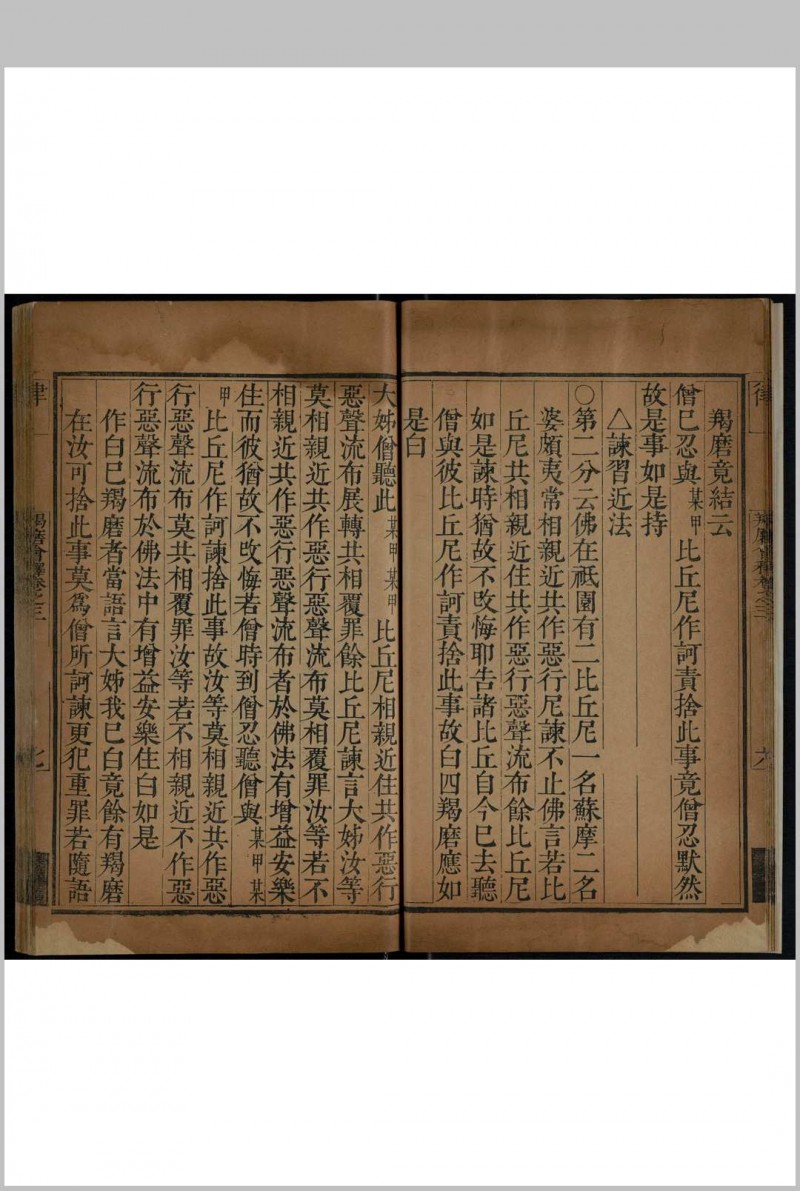 羯磨竟結云
僧已忍與某甲比丘尼作訶責捨此事竟僧忍默然
故是事如是持
△諫習近法
○第二分云佛在祇園有二比丘尼一名蘇摩二名
婆頗夷常相親近共作惡行尼諫不止佛言若比
丘尼共相親近住共作惡行惡聲流布餘比丘尼
如是諫時猶故不改悔耶告諸比丘自今已去聽
僧與彼比丘尼作訶責捨此事故白四羯磨應如
是白
大姊僧聽此某甲某甲比丘尼相親近住共作惡行
惡聲流布展轉共相覆罪餘比丘尼諫言大姊汝等
莫相親近共作惡行惡聲流布莫相覆罪汝等若不
相親近共作惡行惡聲流布者於佛法有增益安樂
住而彼猶故不改悔若僧時到僧忍聽僧與某甲某
甲比丘尼作訶諫捨此事故汝等莫相親近共作惡
行惡聲流布莫共相覆罪汝等若不相親近不作惡
行惡聲流布於佛法中有增益安樂住白如是
作白已羯磨者當語言大姊我已白竟餘有羯磨
在汝可捨此事莫爲僧所訶諫更犯重罪若隨語
律
羯磨會釋卷之三
七